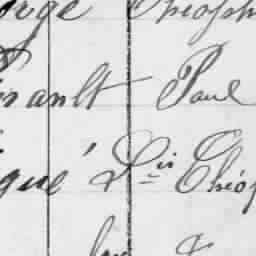 orge Theoph
rault Paul
gué Dir Théop